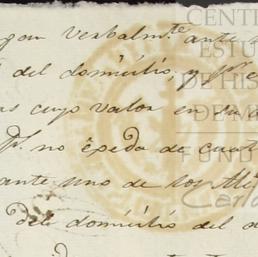 gan verbalm.te ante
del domicilio, y p.r e
as cuyo valor en su
p.r no éceda de cuat
ante uno de los Al
del domicilio del d
CENT
ESTU
DE HIS
DE M
FUND
Carlo